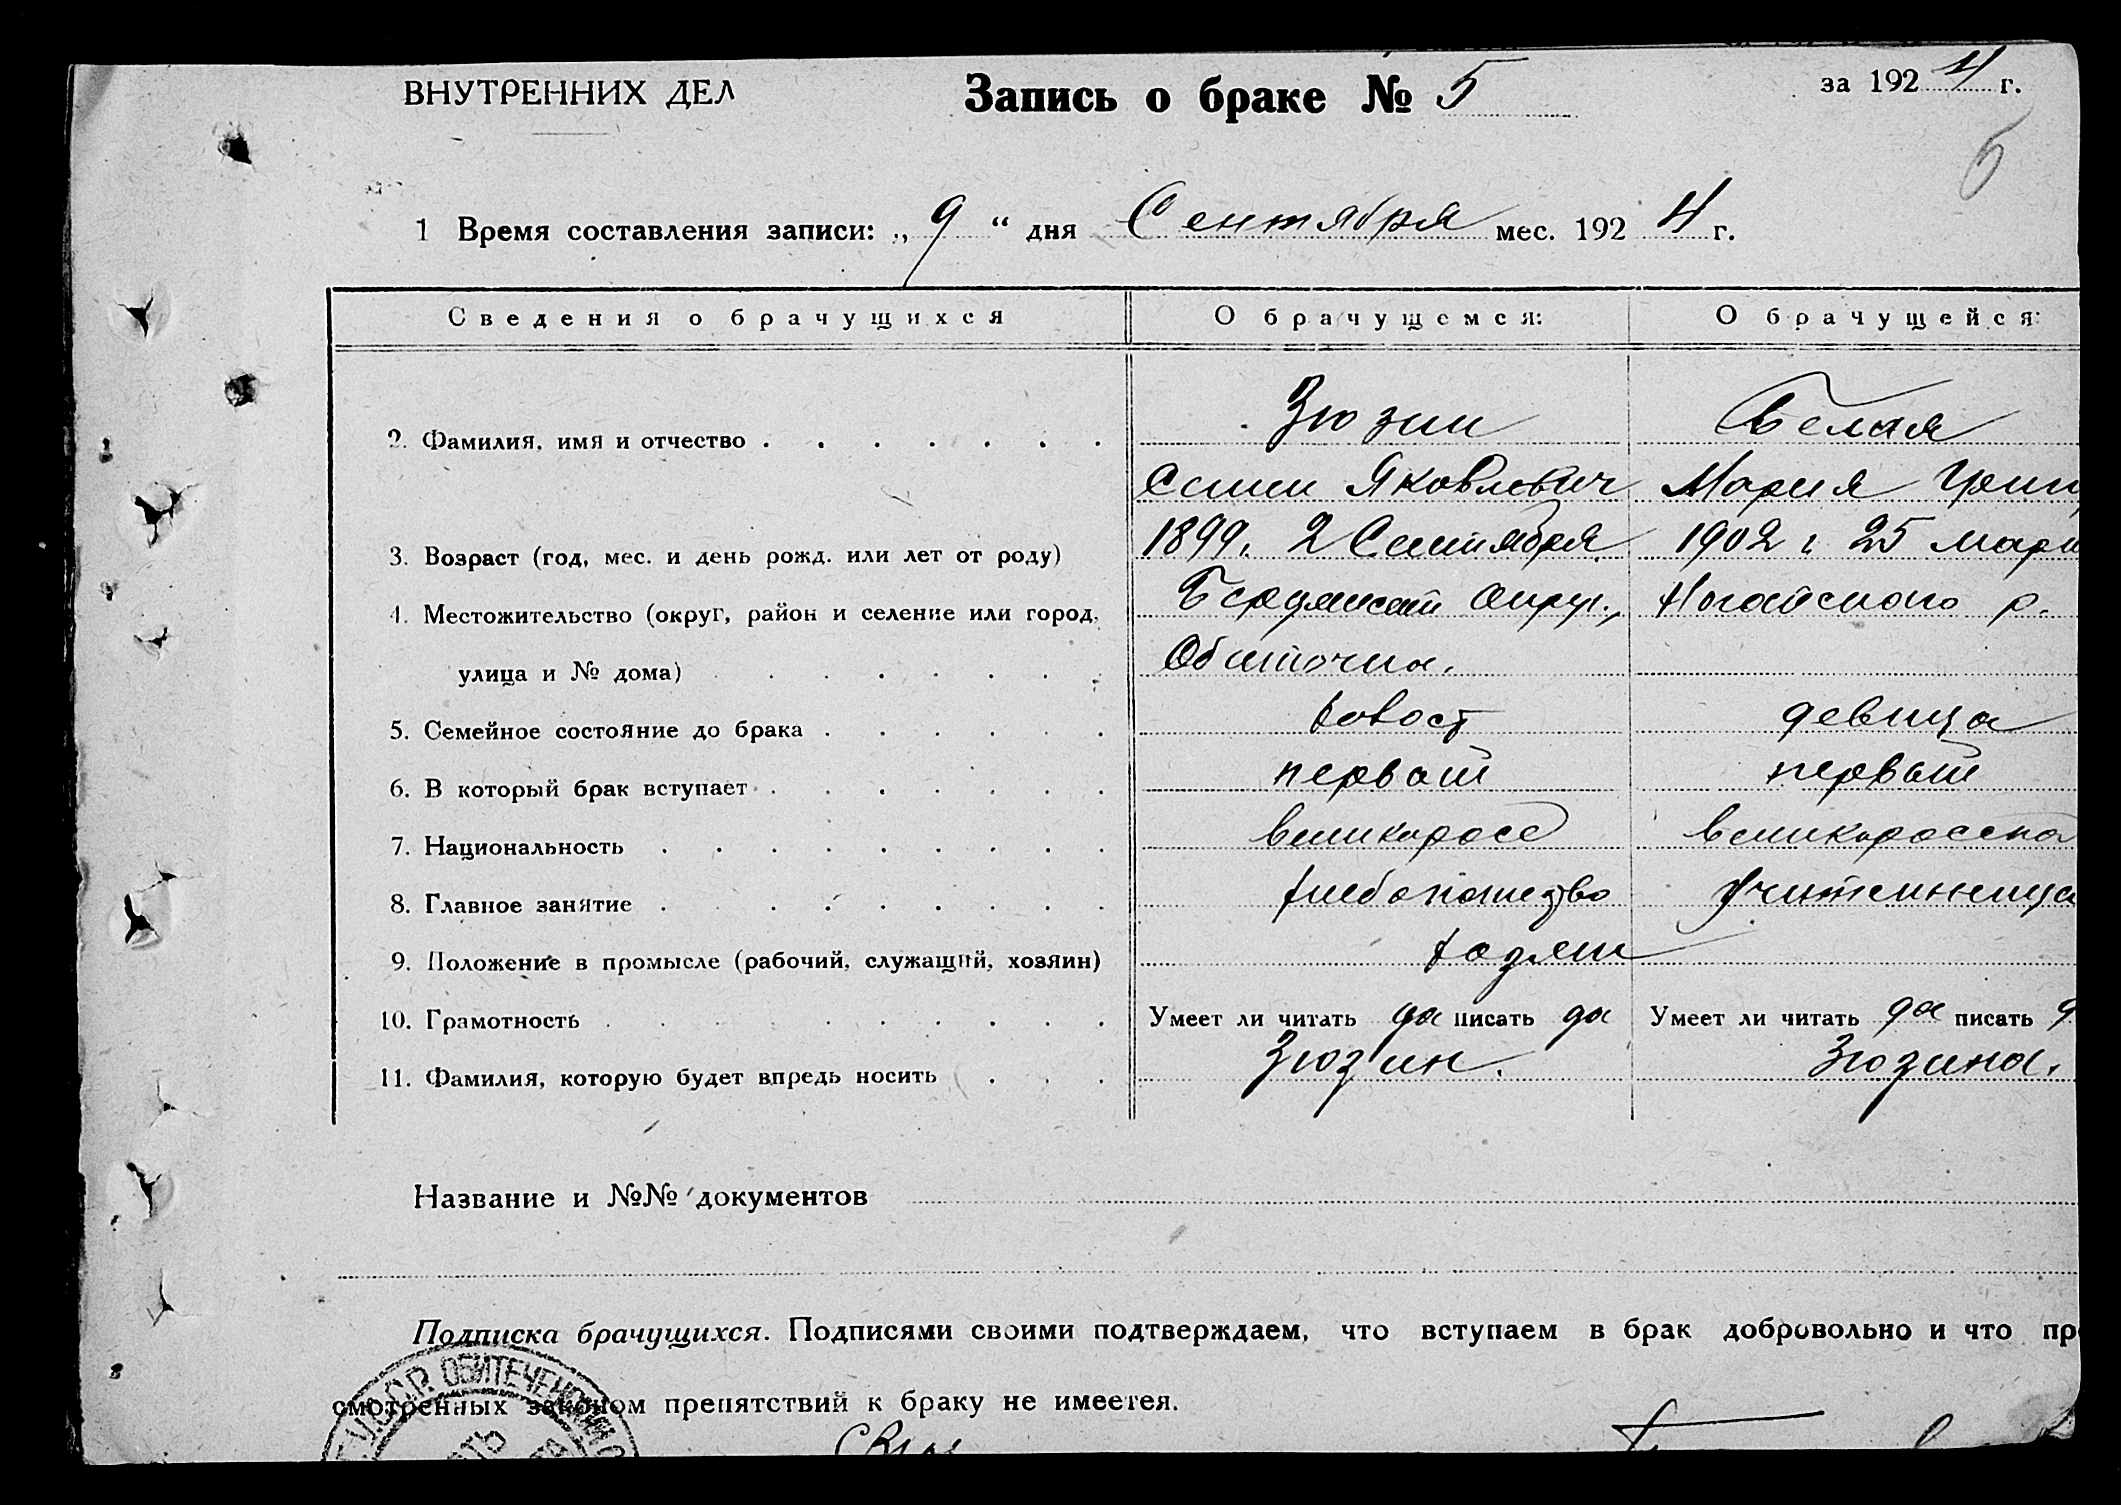 ВНУТРЕННИХ ДЕЛ
Запись о браке № 5
за 1924 г.
5
1 Время составления записи: „9“ дня Сентября мес. 1924 г.
Сведения о брачущихся О брачущемся: О брачущейся:
2. Фамилия, имя и отчество Зюзин Белая
Яковлевич Мария
3. Возраст (год, мес. и день рожд. или лет от роду) 1899. 2 Сентября 1902 г 25 мар
4. Местожительство (округ, район и селение или город, округ., Ногайского р.
улица и № дома) Обиточна.
5. Семейное состояние до брака холост девица
6. В который брак вступает первый первый
7. Национальность великоросс великоросска
8. Главное занятие хлебопашество Учительница
9. Положение в промысле (рабочий, служащий, хозяин) хозяин
10. Грамотность Умеет ли читать да писать да Умеет ли читать да писать д
11. Фамилия, которую будет впредь носить Зюзин. Зюзина.
Название и №№ документов
Подписка брачущихся. Подписями своими подтверждаем, что вступаем в брак добровольно и что пр
смотренных законом препятствий к браку не имеется.
У.С.С.Р. ОБИТОЧЕНСКИЙ С